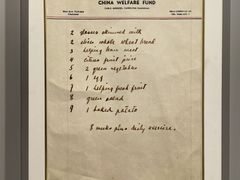 CHINA WELFARE FUND
2 glasses skimmed milk
2 slices whole wheat bread
3 helping lean meat
4 citrus fruit juice
5 2 green vegetables
6 1 egg
7 1 helping fresh fruit
8 green salad
9 1 baked potato
3 meals plus daily exercise.